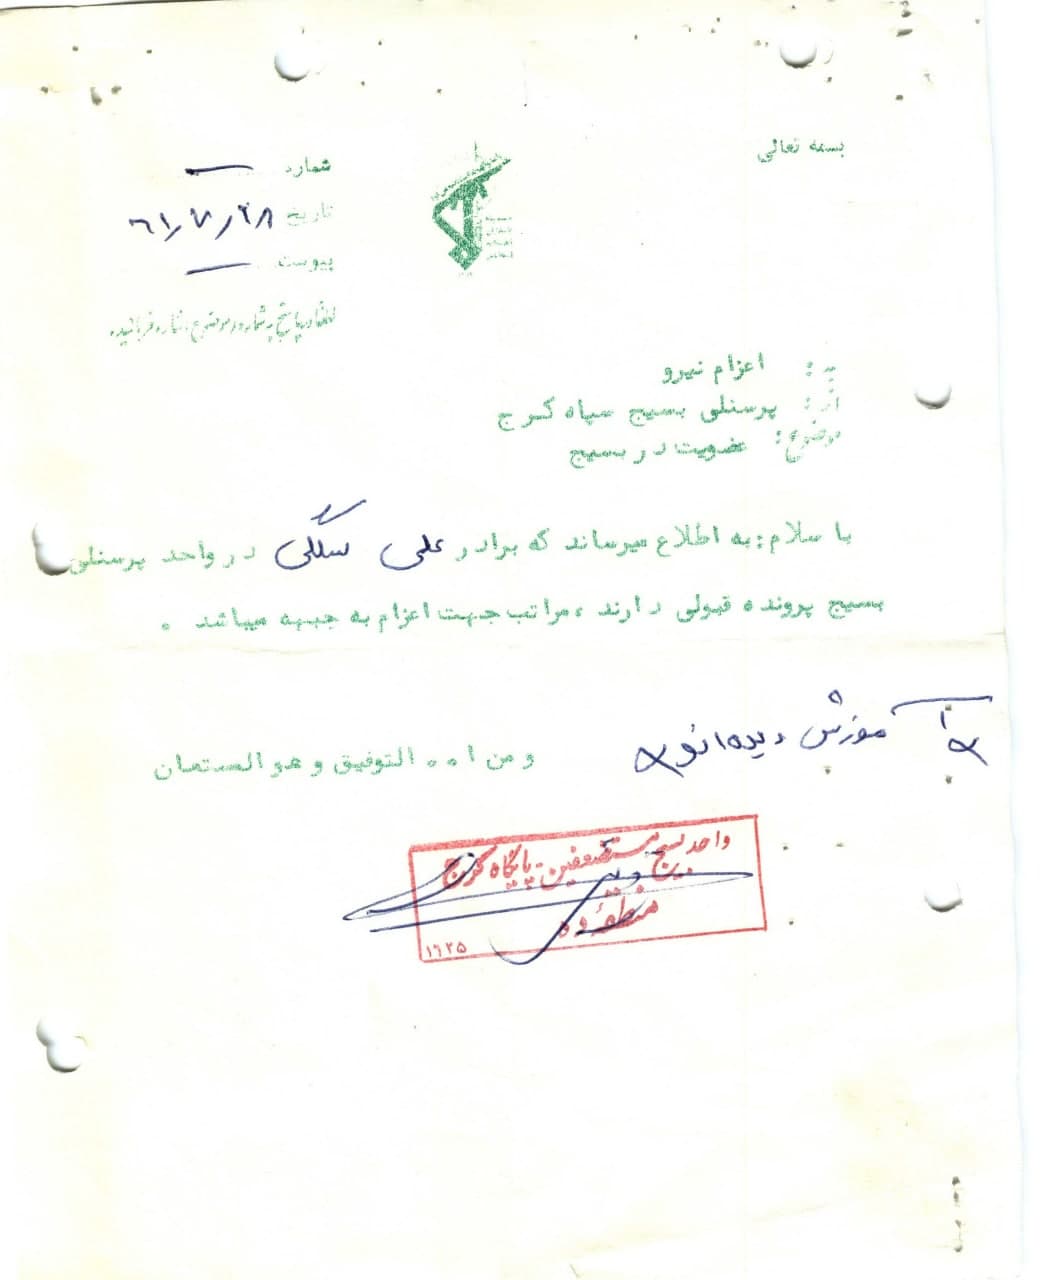 بسمه تعالی
شماره
تاریخ ۶۱/۷/۲۸
پیوست
لطفا در پاسخ به شماره و موضوع اشاره فرمائید.
به: اعزام نیرو
از: پرسنلی بسیج سپاه کرج
موضوع: عضویت در بسیج
با سلام: به اطلاع میرساند که برادر علی در واحد پرسنلی
بسیج پرونده قبولی دارند، مراتب جهت اعزام به جبهه میباشد.
آموزش دیده اند
و من ا... التوفیق و هو المستعان
واحد بسیج مستضعفین پایگاه کرج
منطقه ده
۱۶۲۵